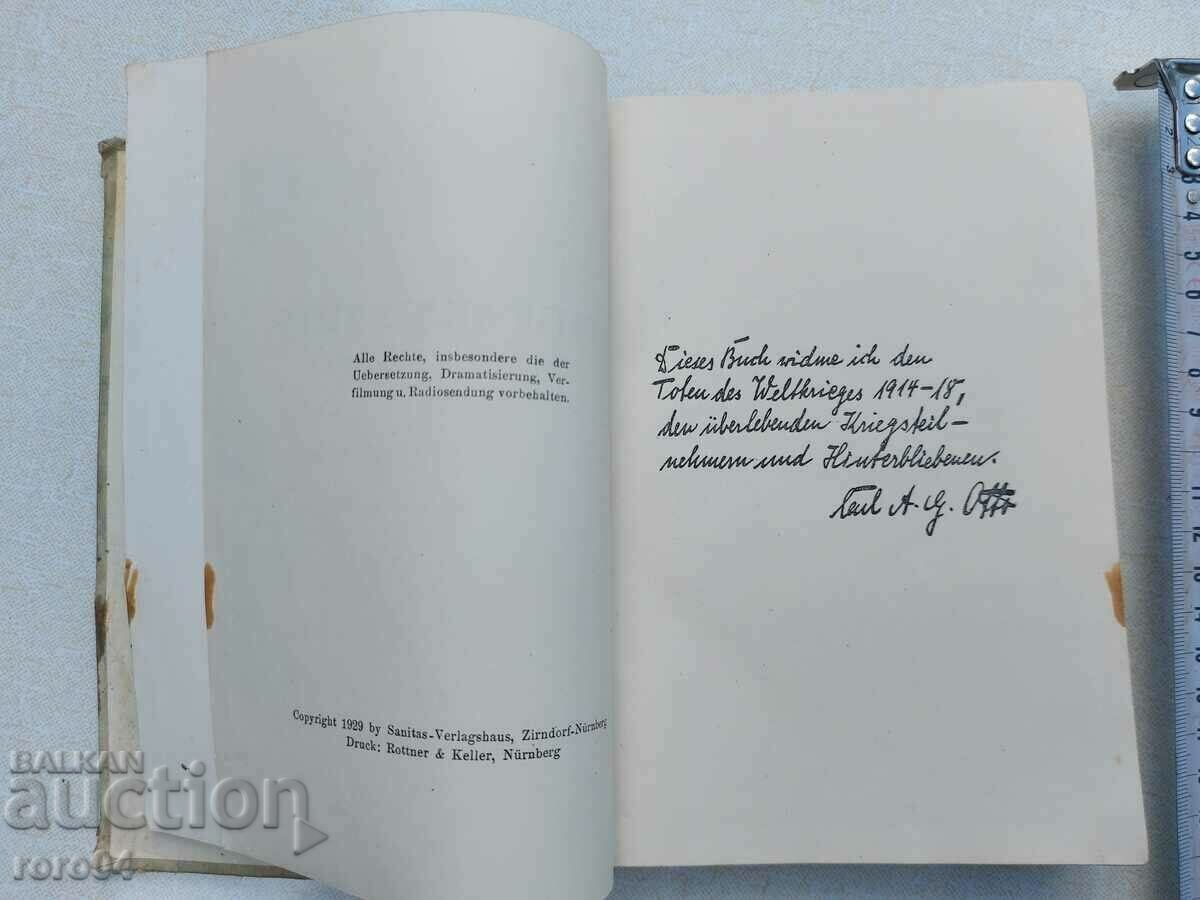 Alle Rechte, insbesondere die der
Uebersetzung, Dramatisierung, Ver-
filmung u. Radiosendung vorbehalten.
Copyright 1929 by Sanitas-Verlagshaus, Zirndorf-Nürnberg
Druck: Rottner & Keller, Nürnberg
Dieses Buch widme ich den
Toten des Weltkrieges 1914-18,
den überlebenden Kriegsteil-
nehmern und Hinterbliebenen.
A. G. Otto
2
3
3
4
5
6
7
8
9
11
12
13
14
BALKAN
auction
roro94